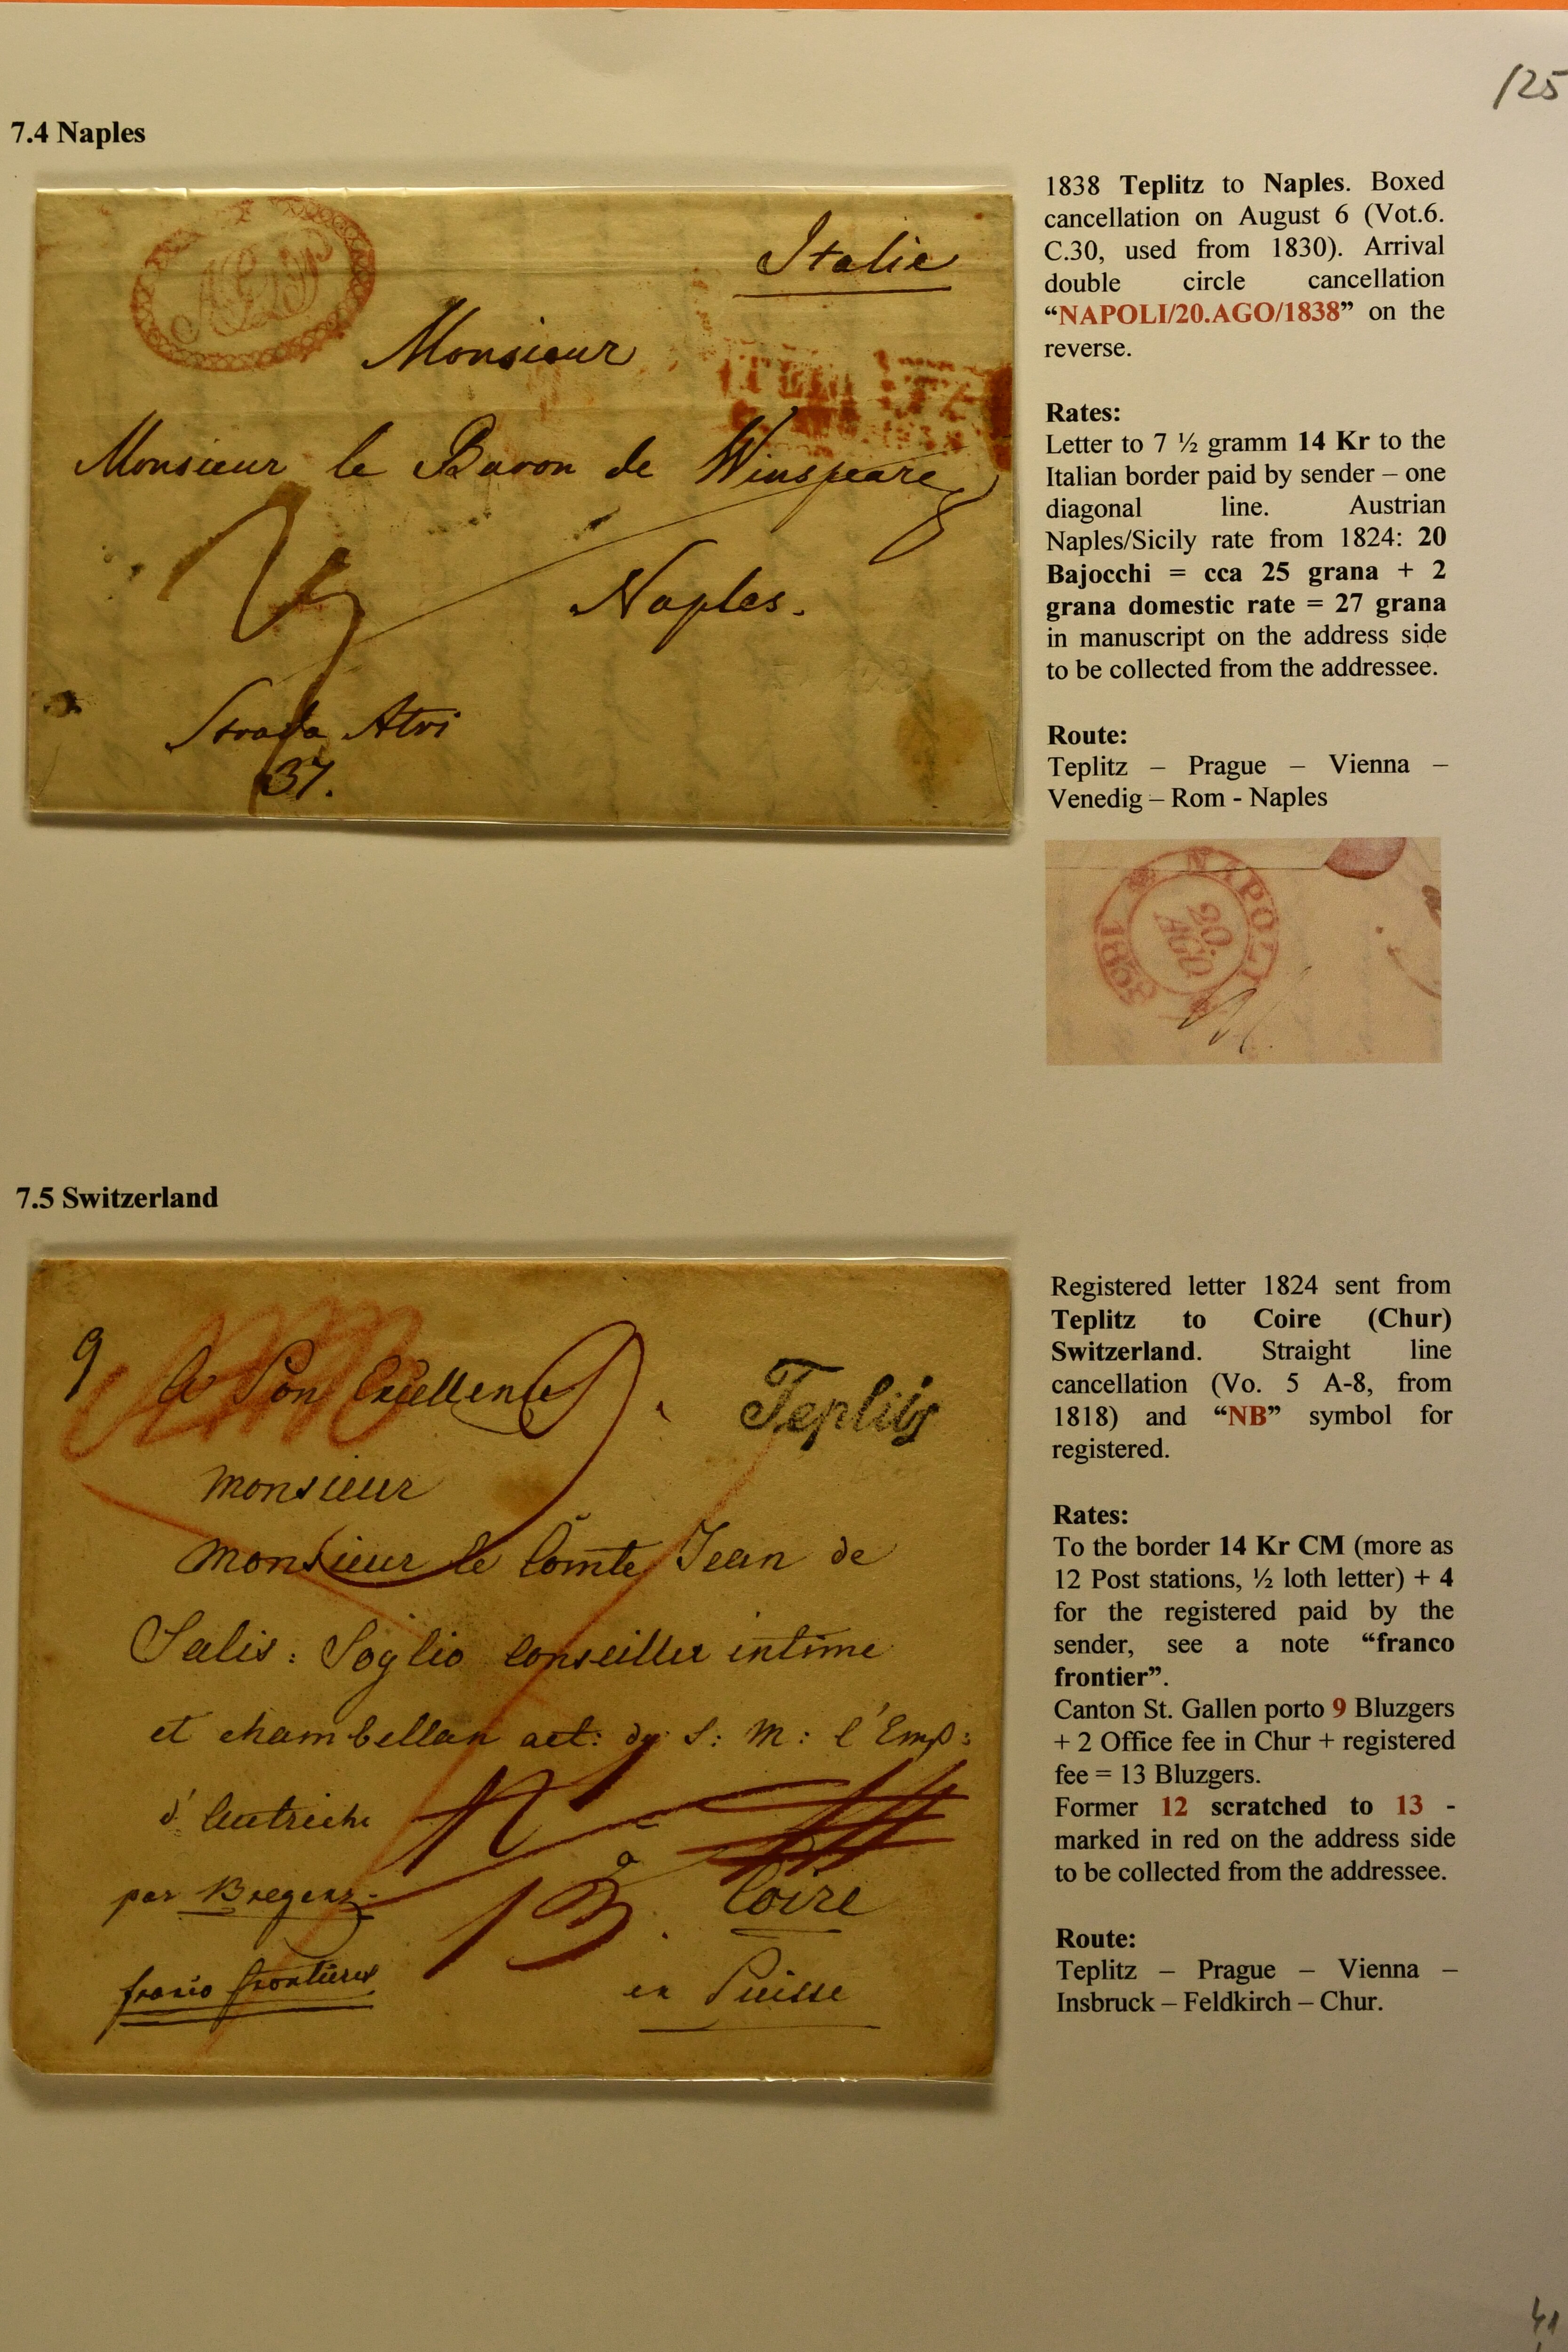 125
7.4 Naples
Italie
Monsieur
TEPLITZ
Monsieur le Baron de Winspeare
Naples.
27
Strada Atri
37.
1838 Teplitz to Naples. Boxed
cancellation on August 6 (Vot.6.
C.30, used from 1830). Arrival
double circle cancellation
“NAPOLI/20.AGO/1838” on the
reverse.
Rates:
Letter to 7 ½ gramm 14 Kr to the
Italian border paid by sender – one
diagonal line. Austrian
Naples/Sicily rate from 1824: 20
Bajocchi = cca 25 grana + 2
grana domestic rate = 27 grana
in manuscript on the address side
to be collected from the addressee.
Route:
Teplitz – Prague – Vienna –
Venedig – Rom - Naples
NAPOLI
20.
AGO
1838
7.5 Switzerland
9
a Son Excellence
Teplitz
Monsieur
Monsieur le Comte Jean de
Salis: Soglio Conseiller intime
et chambellan act: de S: M: l'Emp:
d'Autriche
12
à
par Bregenz
13. Coire
franco frontieres
en Suisse
Registered letter 1824 sent from
Teplitz to Coire (Chur)
Switzerland. Straight line
cancellation (Vo. 5 A-8, from
1818) and “NB” symbol for
registered.
Rates:
To the border 14 Kr CM (more as
12 Post stations, ½ loth letter) + 4
for the registered paid by the
sender, see a note “franco
frontier”.
Canton St. Gallen porto 9 Bluzgers
+ 2 Office fee in Chur + registered
fee = 13 Bluzgers.
Former 12 scratched to 13 -
marked in red on the address side
to be collected from the addressee.
Route:
Teplitz – Prague – Vienna –
Insbruck – Feldkirch – Chur.
41